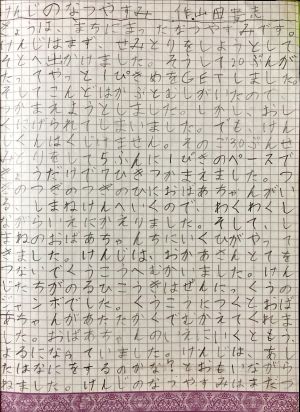 けんじのなつやすみ 作山田貴志
きょうは、まちにまったなつやすみです。
けんじはまず、せみとりをしようとして
そとへ出かけました。そうして20ぷんが
たってやっと1ぴきめをGETしました。
そしてこんどはかぶとむしがいたので、
つかまえようとしました。しかし、おし
くにげられてしまいました。でも、けん
じくんはくじけません。そのご30ぷんせ
みとりをして5ふんに1ぴきのペースで
きょうだけで7ひきつかまえました。つ
ぎのつぎのつぎのひにおばあちゃんがい
る、しまねけんへいくので、わくわくし
ながらいえにかえりました。そして、し
まねのおばあちゃんちにいくひがやって
きました。けんじは、おかあさんとてを
つないでくうこうへむかいました。けん
じたちがのるひこうきはぜんにっくうの
ジャンボでした。くうこうにつくとおば
あちゃんがあたたかくでむかえてくれま
した。おばあちゃんのいえにいくともう
よるになっていました。けんじは、あし
たはなにをするのかな?とおもいながら
ねました。けんじのなつやすみはまだつ